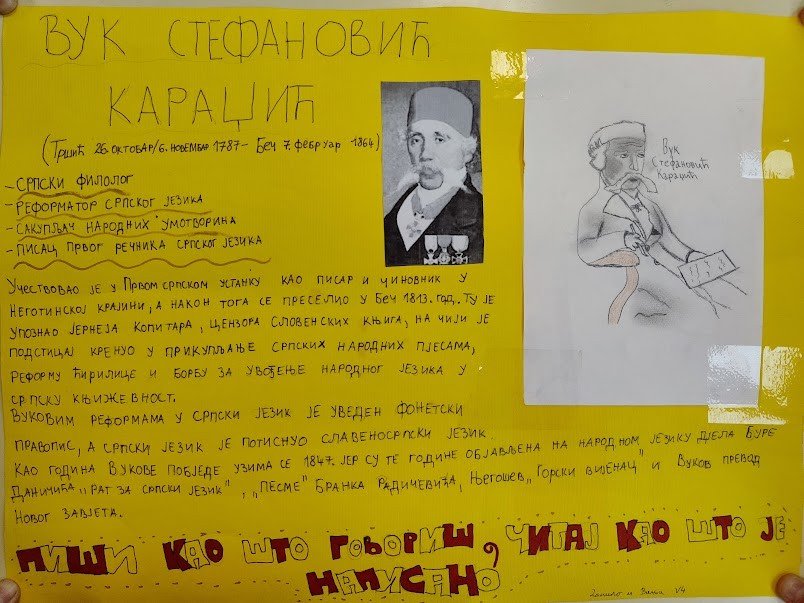 ВУК СТЕФАНОВИЋ
КАРАЏИЋ
(Тршић 26. октобар/6. новембар 1787- Беч 7. фебруар 1864)
-СРПСКИ ФИЛОЛОГ
-РЕФОРМАТОР СРПСКОГ ЈЕЗИКА
-САКУПЉАЧ НАРОДНИХ УМОТВОРИНА
-ПИСАЦ ПРВОГ РЕЧНИКА СРПСКОГ ЈЕЗИКА
Вук
Стефановић
Караџић
Учествовао је у Првом српском устанку као писар и чиновник у
Неготинској крајини, а након тога се преселио у Беч 1813. год. Ту је
упознао Јернеја Копитара, цензора словенских књига, на чији је
подстицај кренуо у прикупљање српских народних пјесама,
реформу ћирилице и борбу за увођење народног језика у
српску књижевност.
Вуковим реформама у српски језик је уведен фонетски
правопис, а српски језик је потиснуо славеносрпски језик.
Као година Вукове побједе узима се 1847. јер су те године објављена на народном језику дјела Ђуре
Даничића „Рат за српски језик", „Песме" Бранка Радичевића, Његошев „Горски вијенац" и Вуков превод
Новог завјета.
ПИШИ КАО ШТО ГОВОРИШ, ЧИТАЈ КАО ШТО ЈЕ
НАПИСАНО
и V4